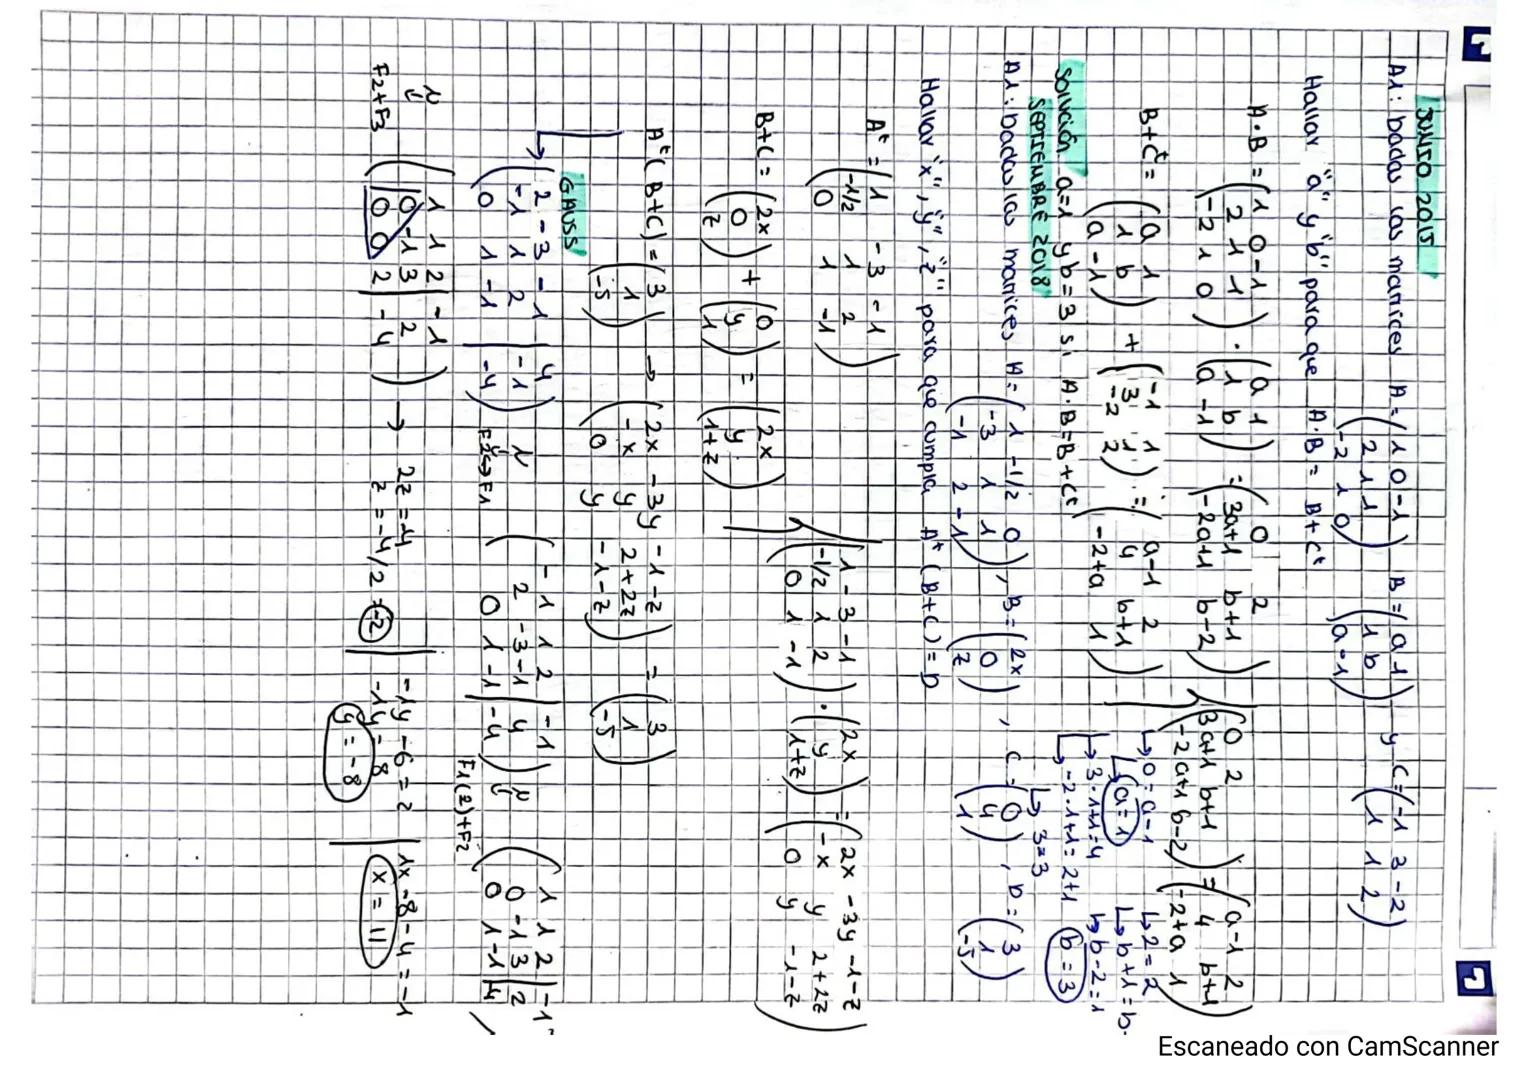 JUNIO 2015
A1: Dadas las matrices A = (1 0 -1 / 2 1 1 / -2 1 0) B = (a 1 / 1 b / a -1) y C = (-1 3 -2 / 1 1 2)
Hallar "a" y "b" para que A·B = B+Cᵗ
A·B = (1 0 -1 / 2 1 1 / -2 1 0) · (a 1 / 1 b / a -1) = (0 2 / 3a+1 b+1 / -2a+1 b-2)
B+Cᵗ = (a 1 / 1 b / a -1) + (-1 1 / 3 1 / -2 2) = (a-1 2 / 4 b+1 / -2+a 1)
(0 2 / 3a+1 b+1 / -2a+1 b-2) = (a-1 2 / 4 b+1 / -2+a 1)
↳ 0 = a-1
↳ a=1
↳ 3·1+1=4
↳ -2·1+1 = 2+1
↳ 3=3
↳ 2=2
↳ b+1 = b.
↳ b-2=1
b=3
Solución a=1 y b=3 si A·B=B+Cᵗ
SEPTIEMBRE 2018
A1: Dadas las matrices A = (1 -1/2 0 / -3 1 1 / -1 2 -1), B = (2x / 0 / z), C = (0 / y / 1), D = (3 / 1 / -5)
Hallar "x", "y", "z" para que cumpla Aᵗ (B+C) = D
Aᵗ = (1 -3 -1 / -1/2 1 2 / 0 1 -1)
B+C = (2x / 0 / z) + (0 / y / 1) = (2x / y / 1+z)
(1 -3 -1 / -1/2 1 2 / 0 1 -1) · (2x / y / 1+z) = (2x -3y -1-z / -x y 2+2z / 0 y -1-z)
Aᵗ (B+C) = (3 / 1 / -5) → (2x -3y -1-z / -x y 2+2z / 0 y -1-z) = (3 / 1 / -5)
GAUSS
(2 -3 -1 | 4 / -1 1 2 | -1 / 0 1 -1 | -4) ~ F2↔F1 (-1 1 2 | -1 / 2 -3 -1 | 4 / 0 1 -1 | -4) ~ F1(2)+F2 (1 1 2 | -1 / 0 -1 3 | 2 / 0 1 -1 | 4)
~ F2+F3 (1 1 2 | -1 / 0 -1 3 | 2 / 0 0 2 | -4) → 2z = -4
z = -4/2 = -2
-1y -6 = 2
-1y = 8
y = -8
1x -8 -4 = -1
x = 11
Escaneado con CamScanner